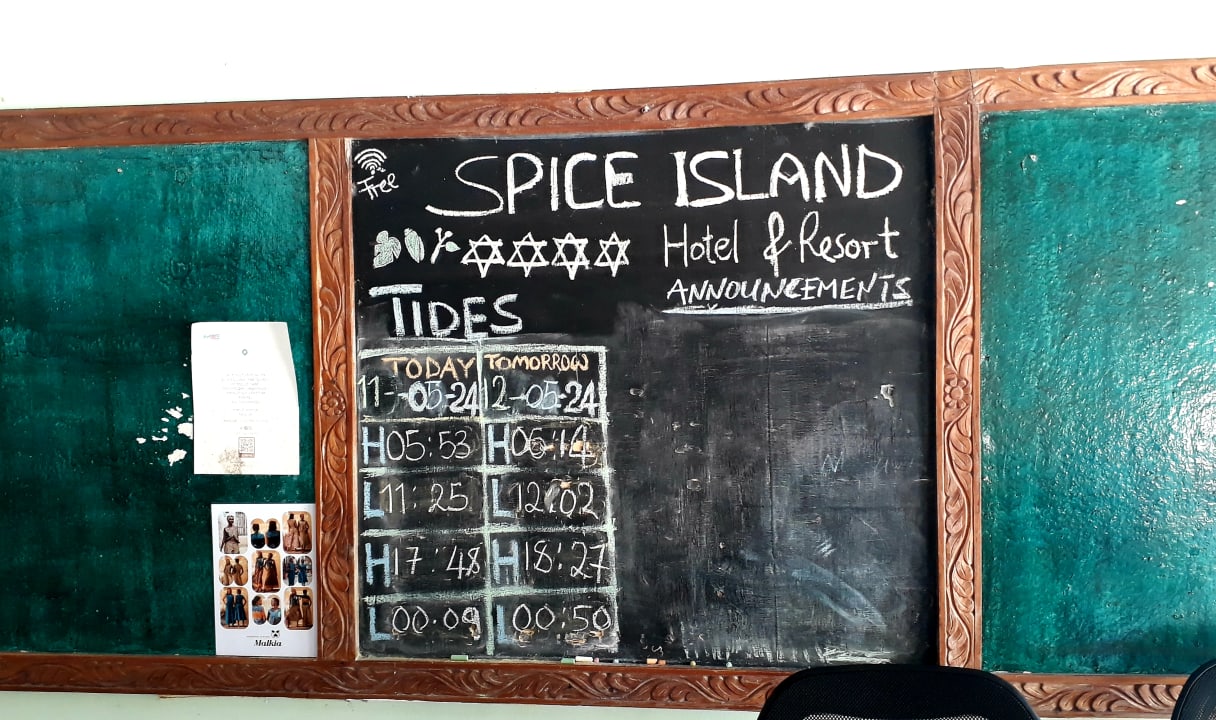 Free
SPICE ISLAND
Hotel & Resort
ANNOUNCEMENTS
TIDES
TODAY TOMORROW
11-05-24 12-05-24
H 05:53 H
L 11:25 L 12:02
H 17:48 H 18:27
L 00.09 L 00:50
Malkia